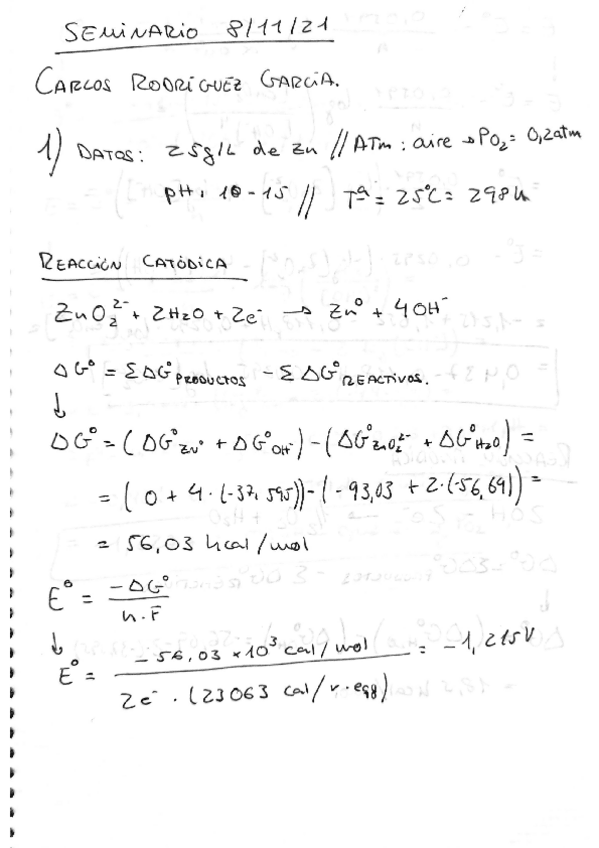 SEMINARIO 8/11/21
CARLOS RODRÍGUEZ GARCÍA.
1) DATOS: 25g/L de Zn // ATM: aire → PO₂= 0,2atm
pH: 10-15 // Tª = 25°C = 298K
REACCIÓN CATÓDICA
ZnO₂²⁻ + 2H₂O + 2e⁻ → Zn⁰ + 4OH⁻
ΔG° = ΣΔG°PRODUCTOS - ΣΔG°REACTIVOS.
↓
ΔG° = (ΔG°Zn° + ΔG°OH⁻) - (ΔG°ZnO₂²⁻ + ΔG°H₂O) =
= (0 + 4·(-37,595)) - (-93,03 + 2·(-56,69)) =
= 56,03 kcal/mol
E° = -ΔG° / n·F
↓
E° = -56,03 × 10³ cal/mol / 2e⁻ · (23063 cal/v·eqg) = -1,215V